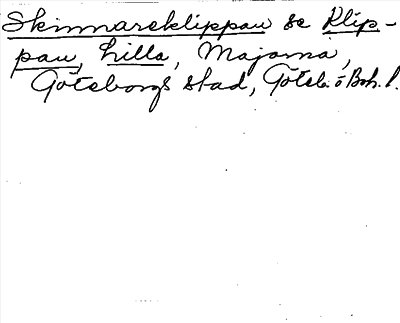 Skinnareklippan se Klip-
pan, Lilla, Majorna,
Göteborgs stad, Göteb. o Boh. l.